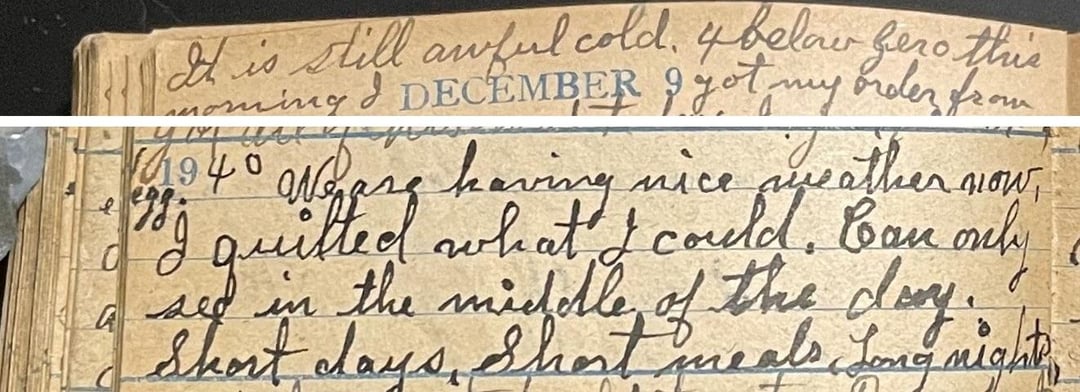 It is still awful cold. 4 below Zero this
morning I DECEMBER 9 got my order from
1940 We are having nice weather now,
egg. I quilted what I could. Can only
see in the middle of the day.
Short days, Short meals, Long nights